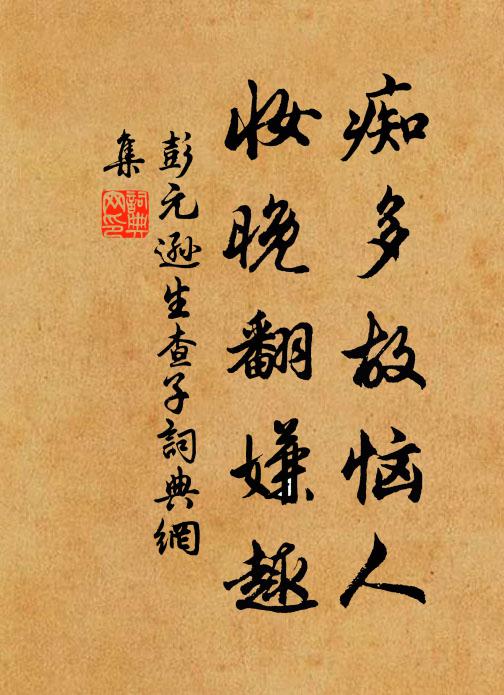 痴多故恼人
妆晚翻嫌趣
彭元逊生查子詞典網
集
詞典
网印